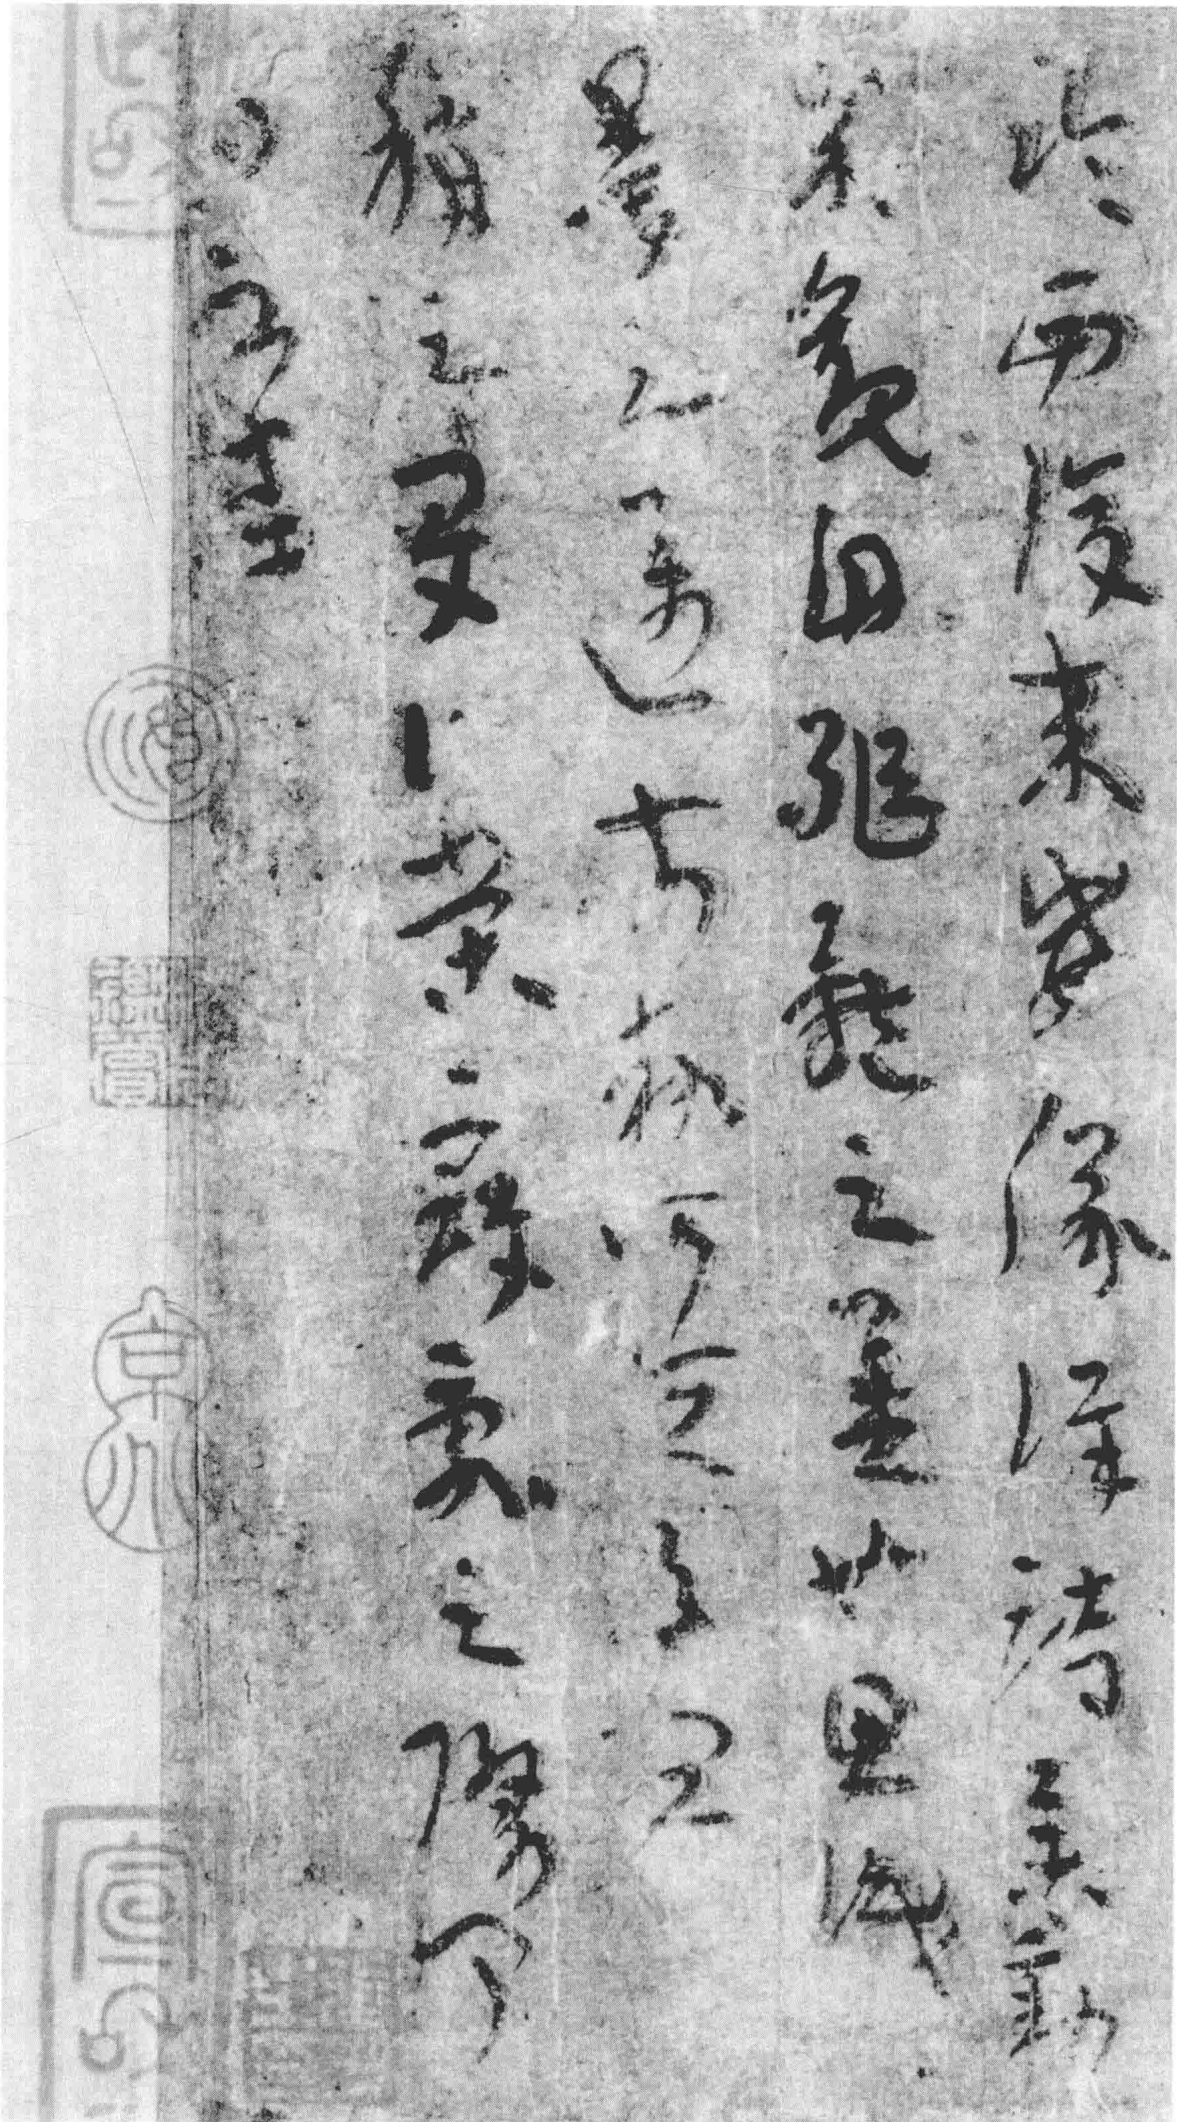 臨西復來威儀詳跱舉動
成觀自軀體之美也思識
量之邁前執所恒有宜
稱之夏伯榮寇亂之際聞
問不悉